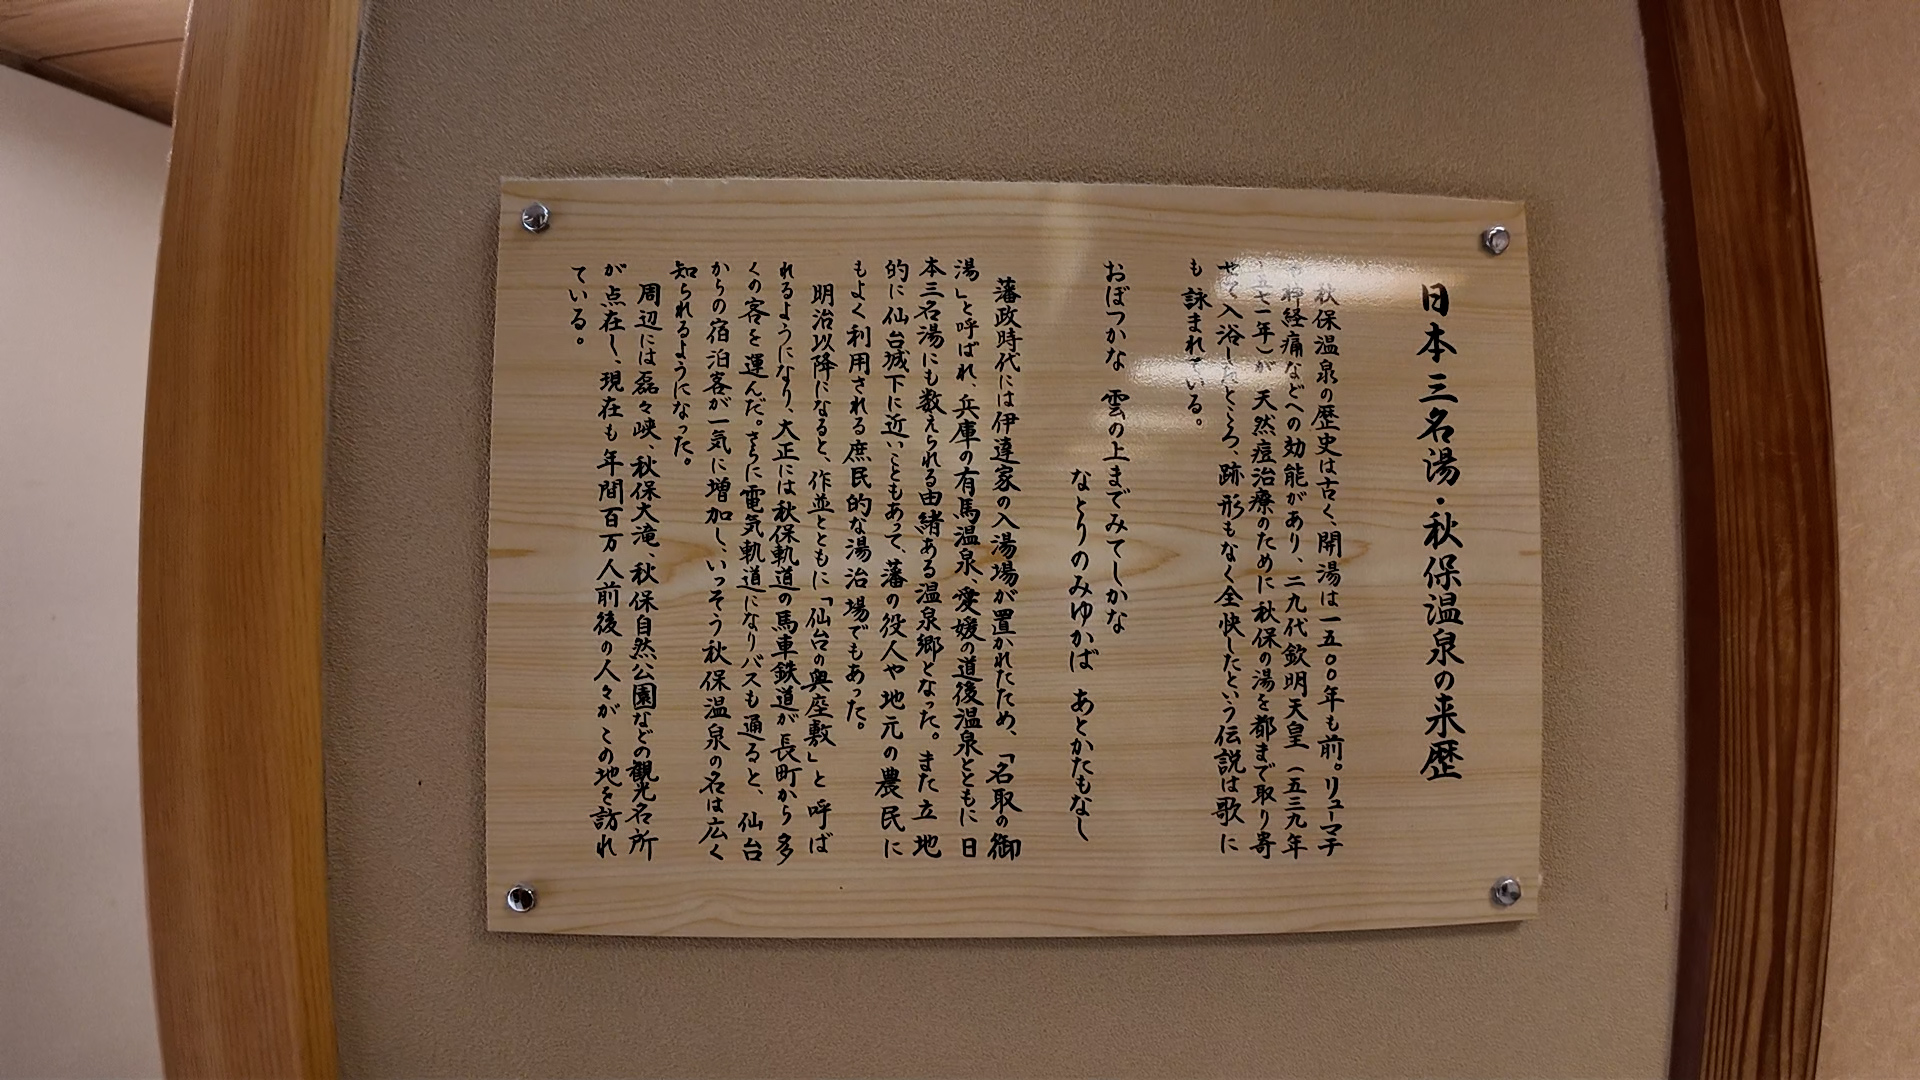 日本三名湯・秋保温泉の来歴
秋保温泉の歴史は古く、開湯は一五〇〇年も前。リューマチ
や神経痛などへの効能があり、二九代欽明天皇（五三九年
五七一年）が天然痘治療のために秋保の湯を都まで取り寄
せて入浴したところ、跡形もなく全快したという伝説は歌に
も詠まれている。
おぼつかな　雲の上までみてしかな
なとりのみゆかば　あとかたもなし
藩政時代には伊達家の入湯場が置かれたため、「名取の御
湯」と呼ばれ、兵庫の有馬温泉、愛媛の道後温泉とともに日
本三名湯にも数えられる由緒ある温泉郷となった。また立地
的に仙台城下に近いこともあって、藩の役人や地元の農民に
もよく利用される庶民的な湯治場でもあった。
明治以降になると、作並とともに「仙台の奥座敷」と呼ば
れるようになり、大正には秋保軌道の馬車鉄道が長町から多
くの客を運んだ。さらに電気軌道になりバスも通ると、仙台
からの宿泊客が一気に増加し、いっそう秋保温泉の名は広く
知られるようになった。
周辺には磊々峡、秋保大滝、秋保自然公園などの観光名所
が点在し、現在も年間百万人前後の人々がこの地を訪れ
ている。